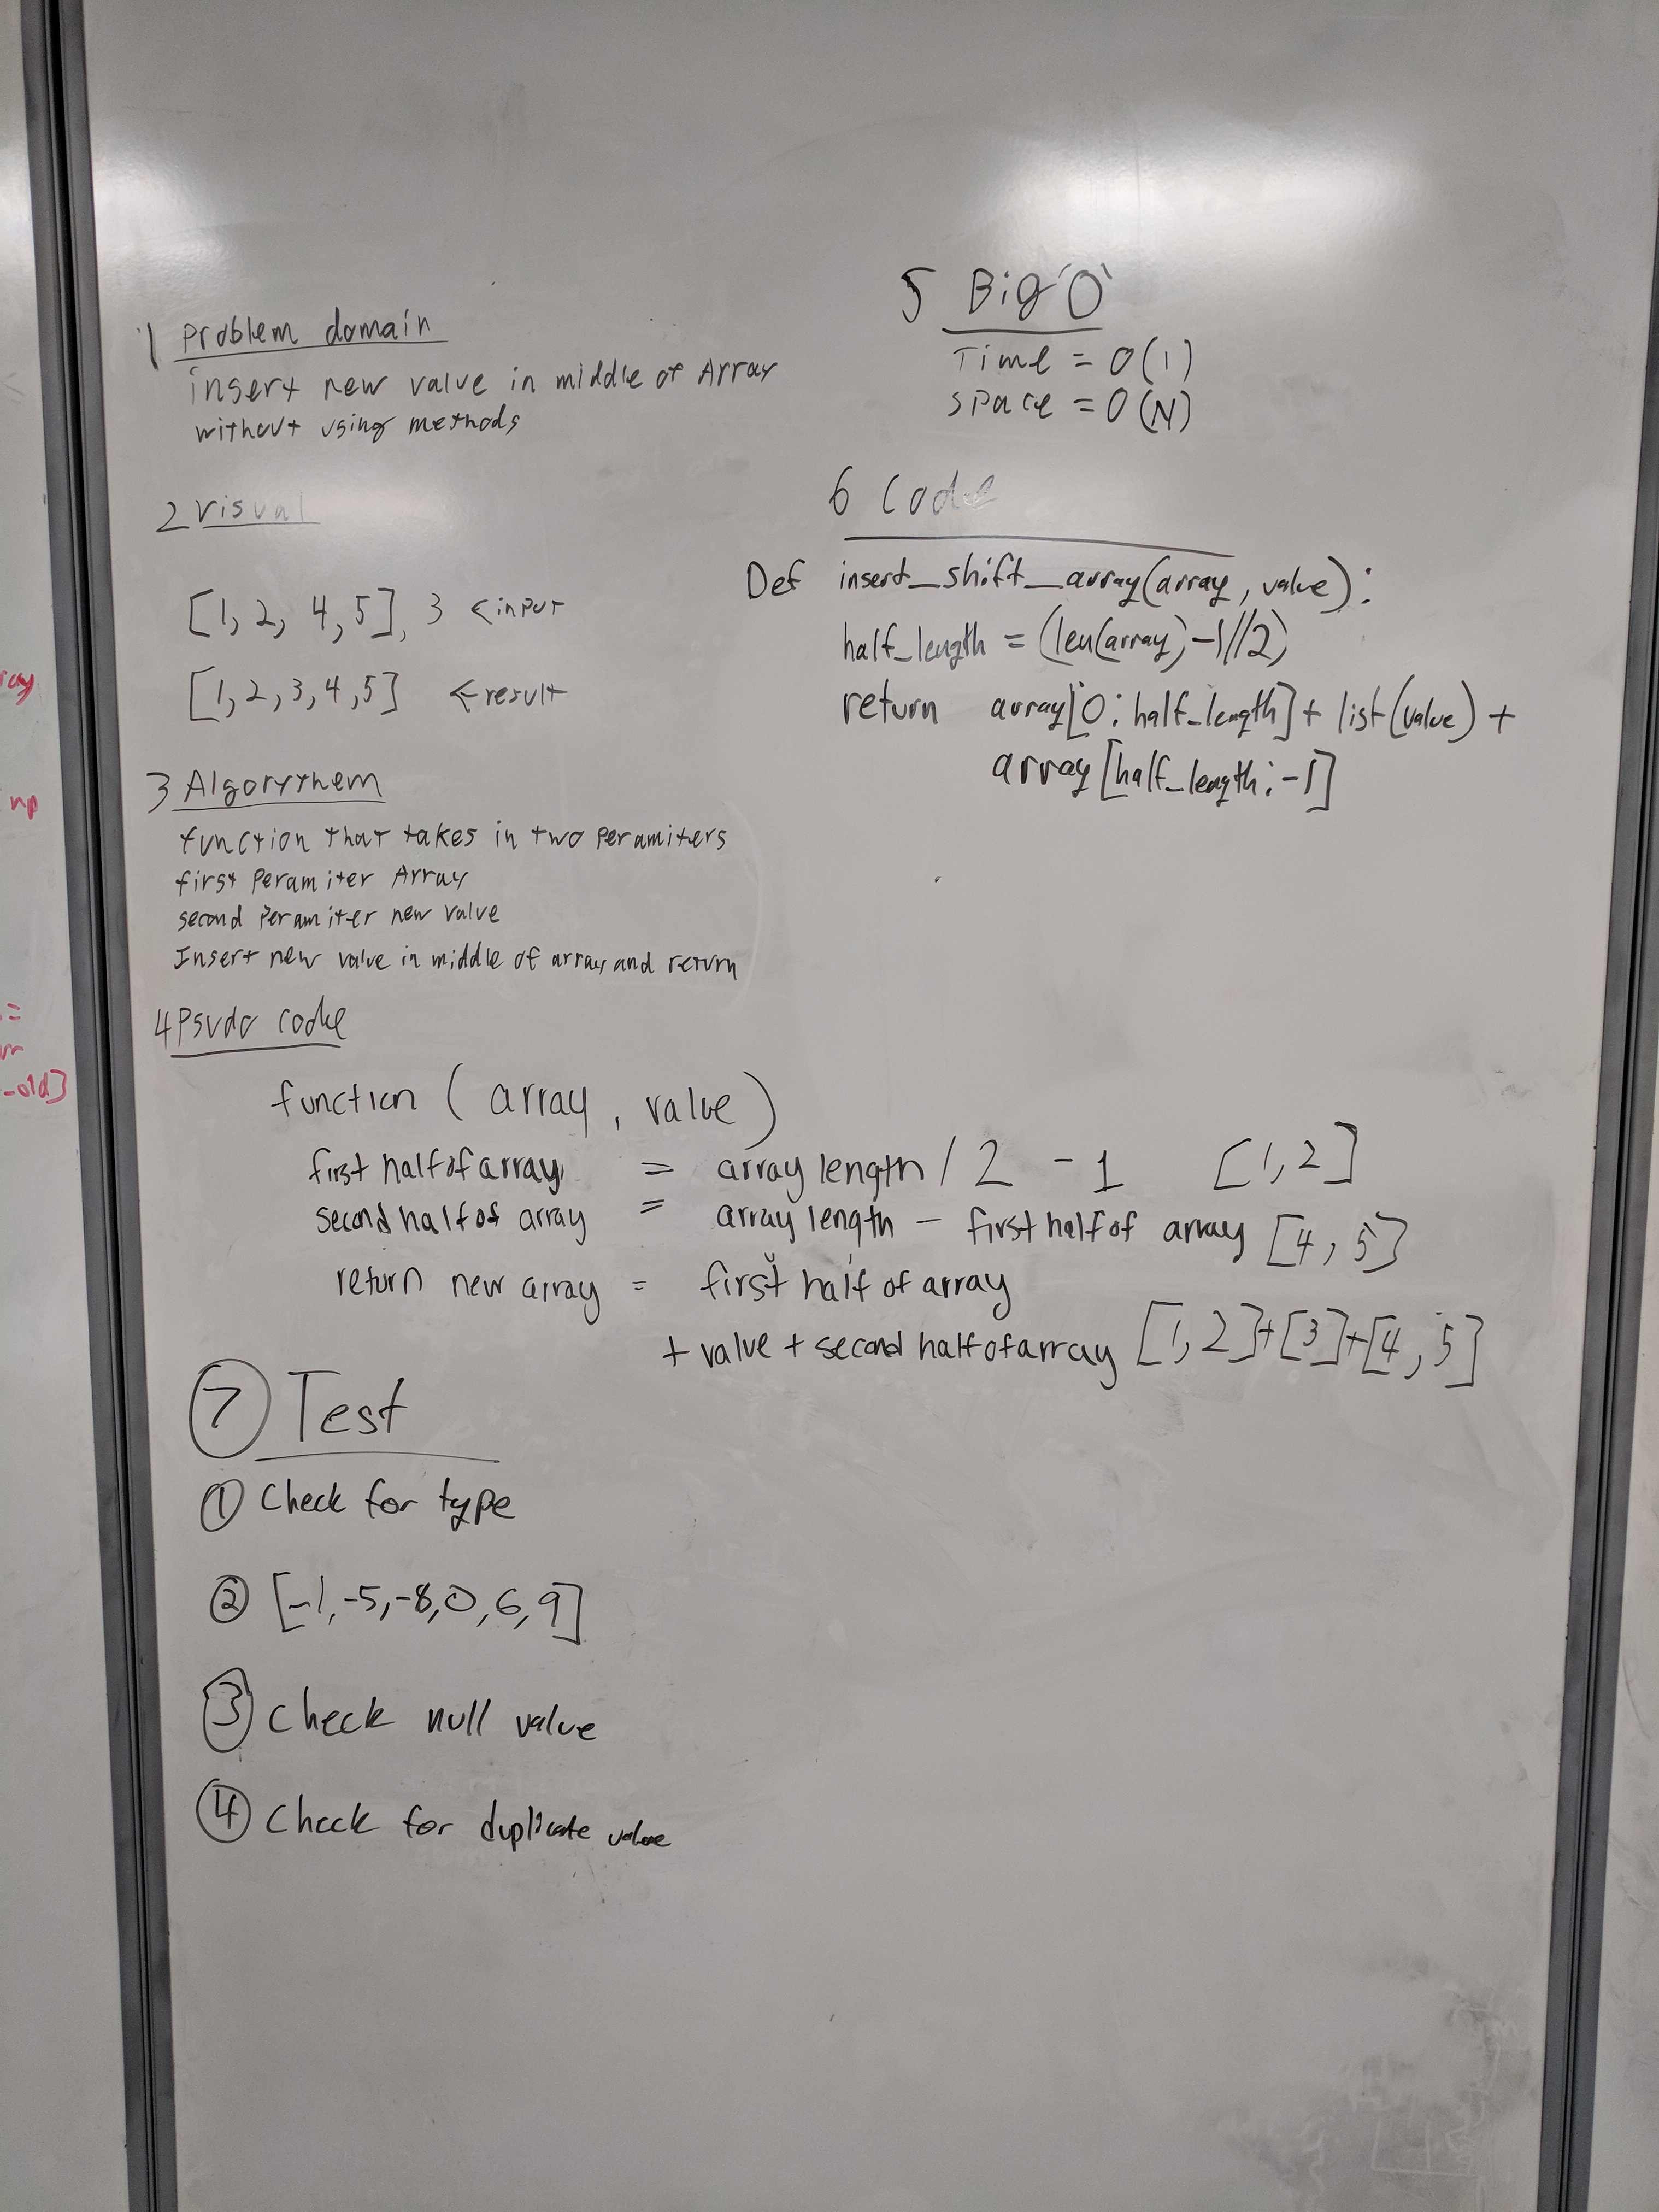 1 Problem domain
insert new value in middle of Array
without using methods
2 Visual
[1, 2, 4, 5], 3 ← input
[1, 2, 3, 4, 5] ← result
3 Algorythem
function that takes in two Peramiters
first Peramiter Array
second Peramiter new value
Insert new value in middle of array and return
4 Psudo code
function ( array , value )
first half of array = array length / 2 - 1 [1, 2]
second half of array = array length - first half of array [4, 5]
return new array = first half of array
+ value + second half of array [1, 2]+[3]+[4, 5]
5 Big 'O'
Time = O(1)
space = O(N)
6 Code
Def insert_shift_array(array, value):
half_length = (len(array)-1//2)
return array[0: half_length] + list(value) +
array[half_length: -1]
7 Test
1 Check for type
2 [-1, -5, -8, 0, 6, 9]
3 Check null value
4 Check for duplicate value
ray
np
=
_old]